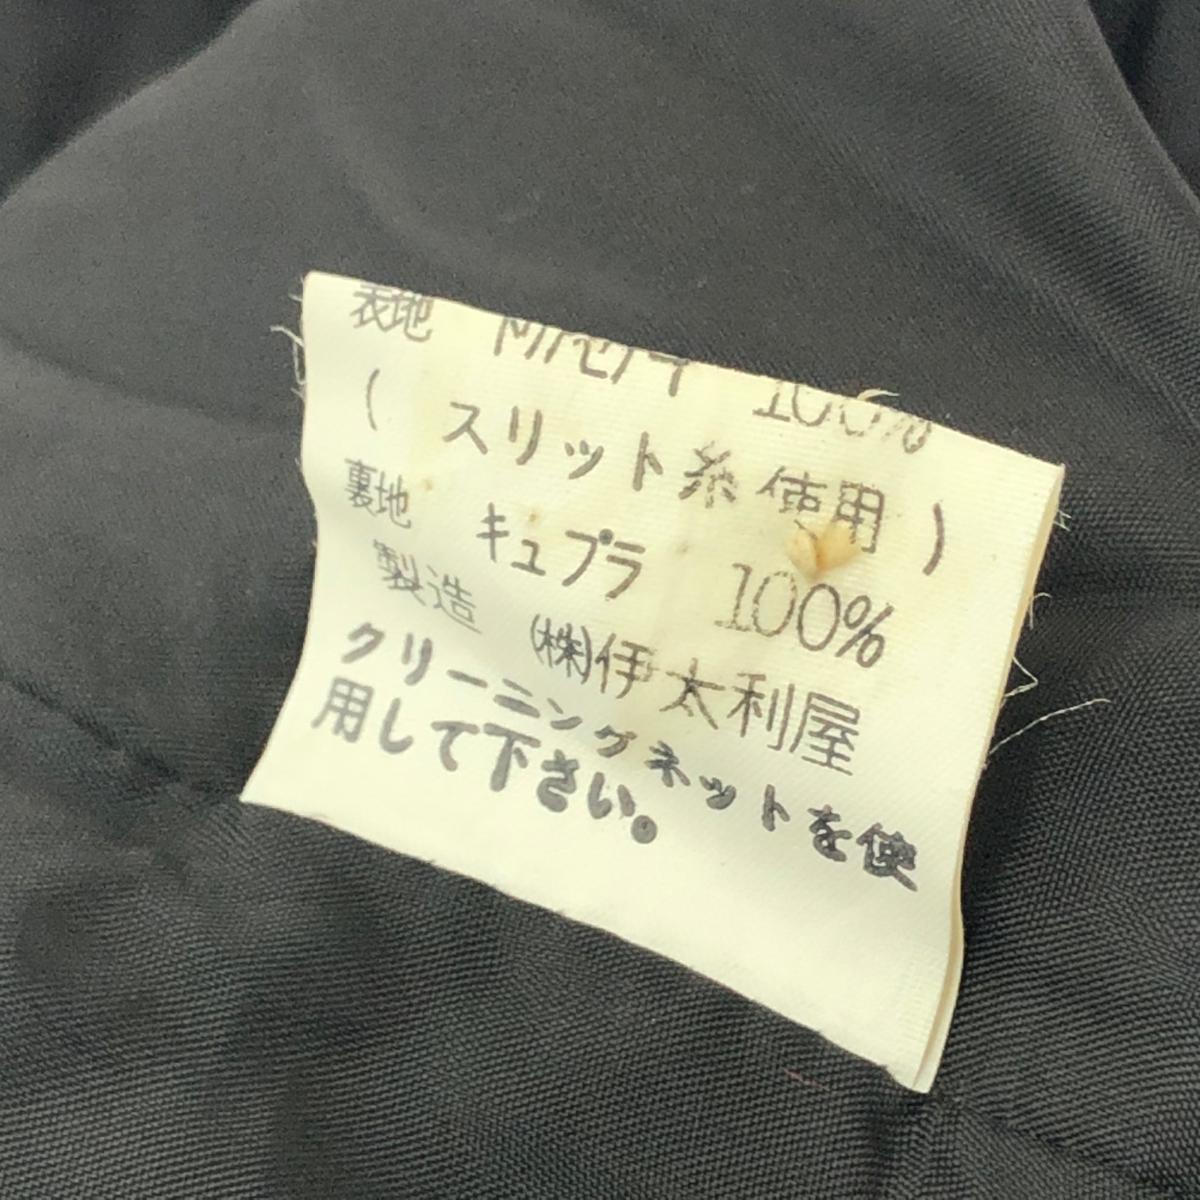 表地 トリアセテート 100%
( スリット糸使用 )
裏地 キュプラ 100%
製造 (株)伊太利屋
クリーニングネットを使
用して下さい。